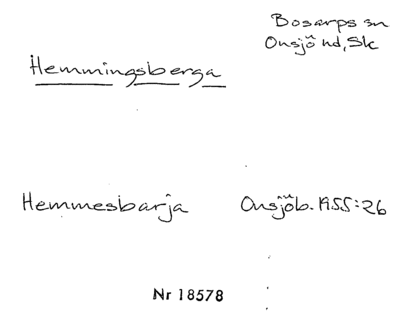 Bosarps sn
Onsjö hd, Sk
Hemmingsberga
Hemmesbarja Onsjöb. 1955:26
Nr 18578